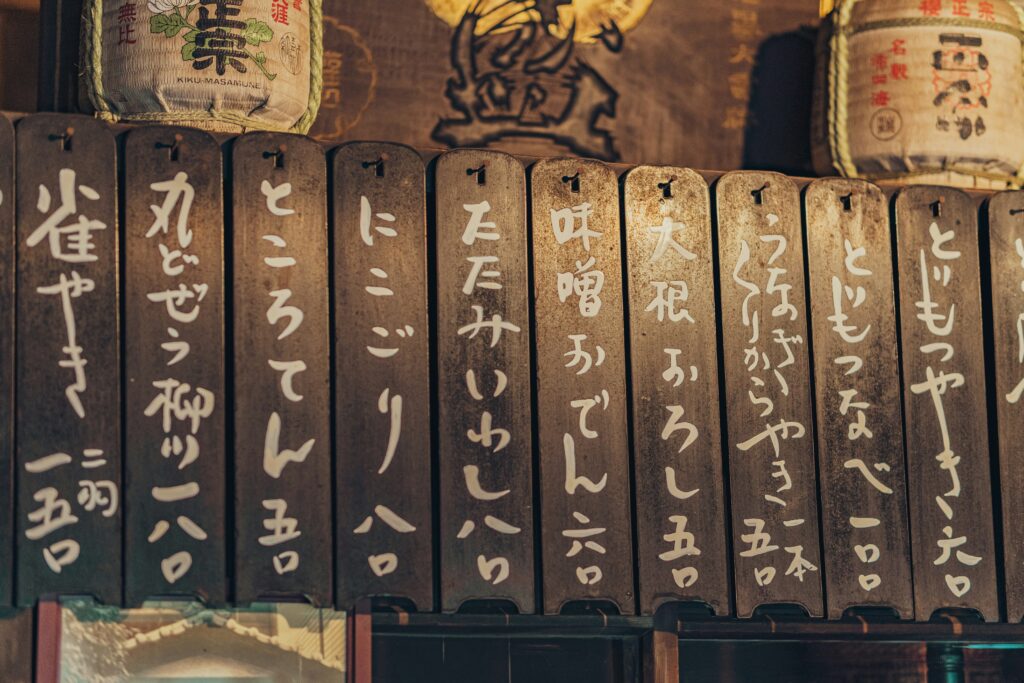 正宗
KIKU-MASAMUNE
無比
とじもつやき 六〇
とじもつなべ 一〇〇
うなぎ
くりからやき 一本 五〇
大根おろし 五〇
味噌おでん 六〇
たたみいわし 八〇
にこごり 八〇
ところてん 五〇
丸どぜう柳川 一八〇
雀やき 二羽 一五〇